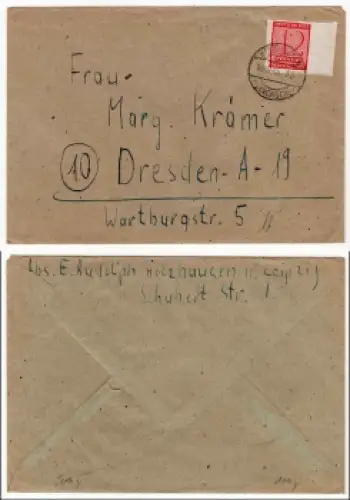 Frau
Marg. Krämer
10 Dresden-A-19
Wartburgstr. 5
Abs. E. Rudolph Holzhausen b. Leipzig
Schubert Str. 1.